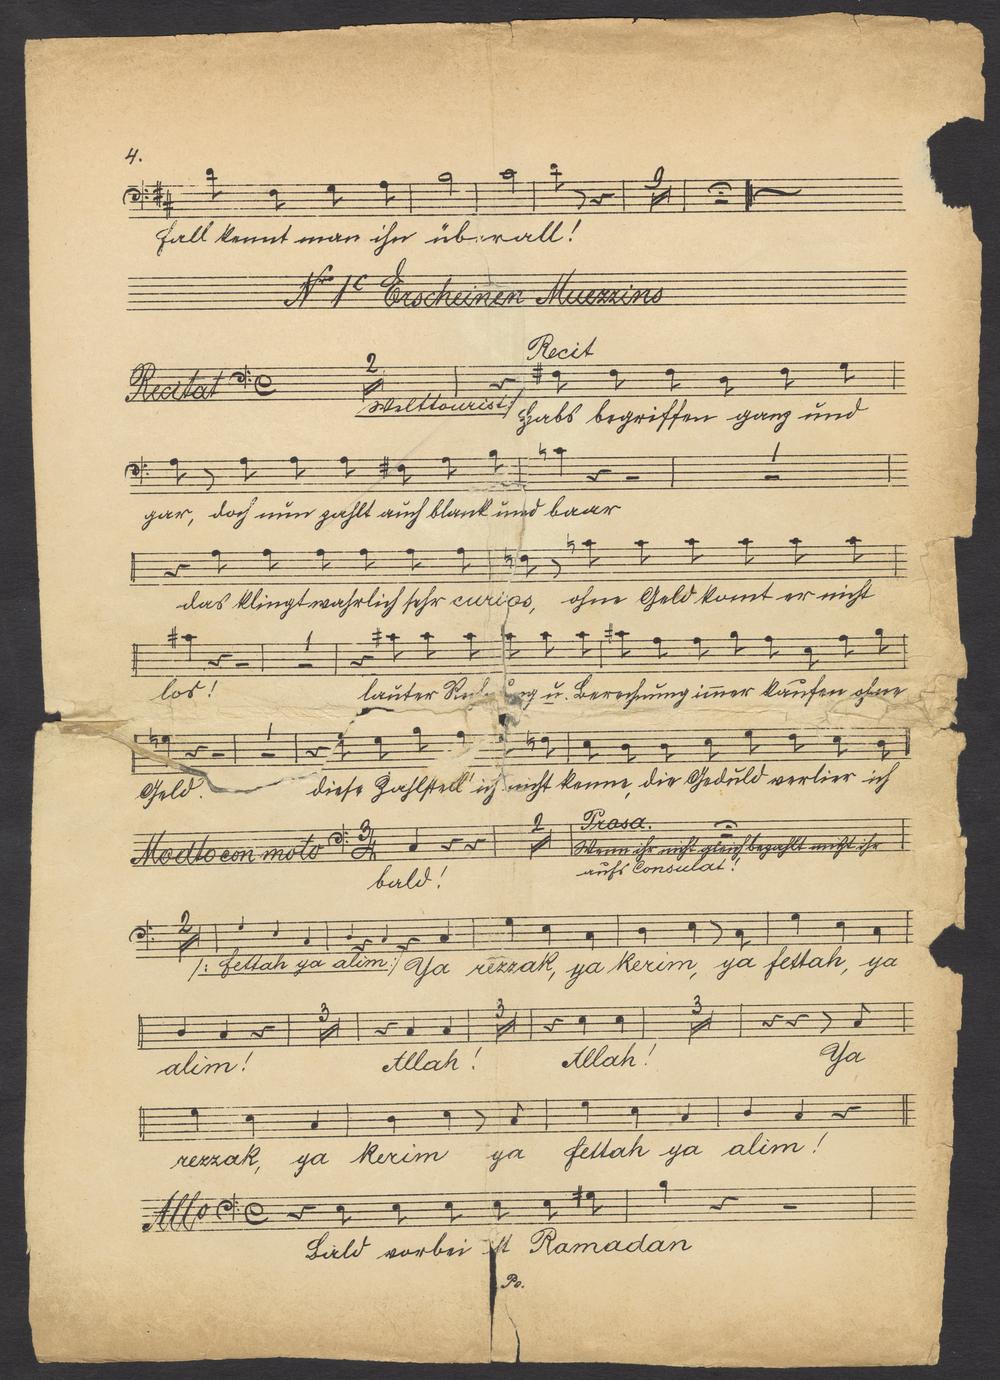 4.
9
fall kennt man ihn überall!
Nr 1c Erscheinen Muezzins
Recit
2
Recitat
/:Welttourist:/ Habs begriffen ganz und
1
gar, doch nun zahlt auch blank und baar
das klingt wahrlich sehr curios, ohne Geld komt er nicht
1
los! lauter u. Berechnung imer kaufen ohne
1
Geld. diese Zahlstell' ich nicht kenne, die Geduld verlier ich
Prosa.
Modto con moto 3/4 2
Wenn ihr nicht gleich bezahlt müsst ihr
bald! aufs Consulat!
2
/: fettah ya alim:/ Ya rezzak, ya kerim, ya fettah, ya
3 3 3
alim! Allah! Allah! Ya
rezzak, ya kerim ya fettah ya alim!
Allo
Bald vorbei ist Ramadan
Po.